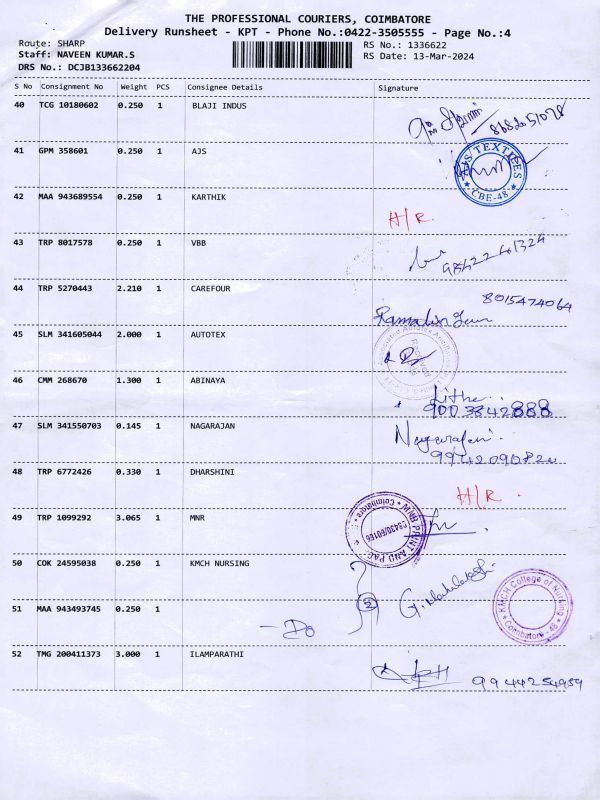 THE PROFESSIONAL COURIERS, COIMBATORE
Delivery Runsheet - KPT - Phone No.:0422-3505555 - Page No.:4
Route: SHARP
Staff: NAVEEN KUMAR.S
DRS No.: DCJB133662204
RS No.: 1336622
RS Date: 13-Mar-2024
S No Consignment No Weight PCS Consignee Details Signature
40 TCG 10180602 0.250 1 BLAJI INDUS
8682051078
41 GPM 358601 0.250 1 AJS
AJS TEXTILES
CBE-48
42 MAA 943689554 0.250 1 KARTHIK
H/R.
43 TRP 8017578 0.250 1 VBB
44 TRP 5270443 2.210 1 CAREFOUR
8015474064
45 SLM 341605044 2.000 1 AUTOTEX
46 CMM 268670 1.300 1 ABINAYA
9003842888
47 SLM 341550703 0.145 1 NAGARAJAN
Nagarajan
48 TRP 6772426 0.330 1 DHARSHINI
H/R.
49 TRP 1099292 3.065 1 MNR
PRINT AND PAC
Coimbatore
50 COK 24595038 0.250 1 KMCH NURSING
KMCH College of Nursing
Coimbatore - 48
51 MAA 943493745 0.250 1
- Do
2
52 TMG 200411373 3.000 1 ILAMPARATHI
9944254959